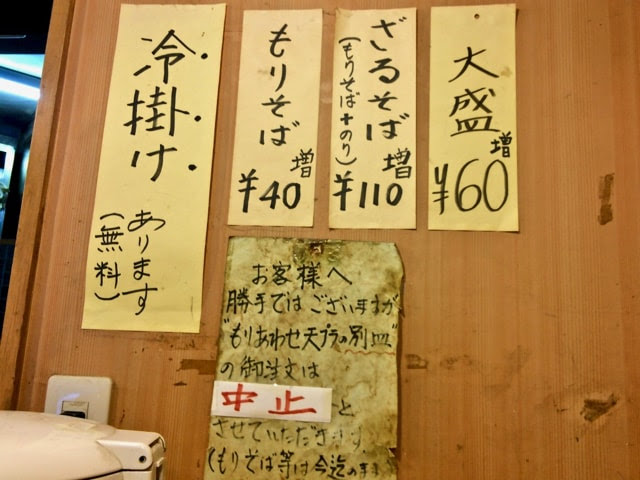 大盛
増
¥60
ざるそば
(もりそば+のり)
増
¥110
もりそば
増
¥40
冷掛け
あります
(無料)
お客様へ
勝手ではございますが
"もりあわせ天プラの別皿"
の御注文は
中止と
させていただきます
(もりそば等は今迄のまま